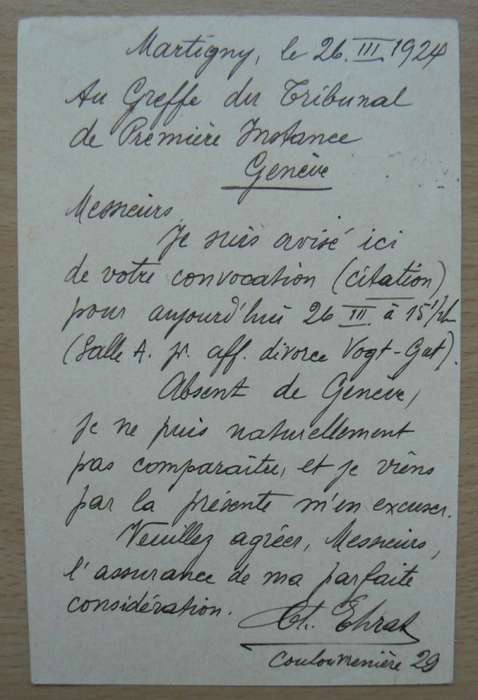 Martigny, le 26.III.1924
Au Greffe du Tribunal
de Première Instance
Genève
Messieurs,
Je suis avisé ici
de votre convocation (citation)
pour aujourd'hui 26 III. à 15½h
(Salle A. p. aff. divorce Vogt-Gut).
Absent de Genève,
je ne puis naturellement
pas comparaître, et je viens
par la présente m'en excuser.
Veuillez agréer, Messieurs,
l'assurance de ma parfaite
considération.
Ch. Ehrat
Coulouvrenière 29